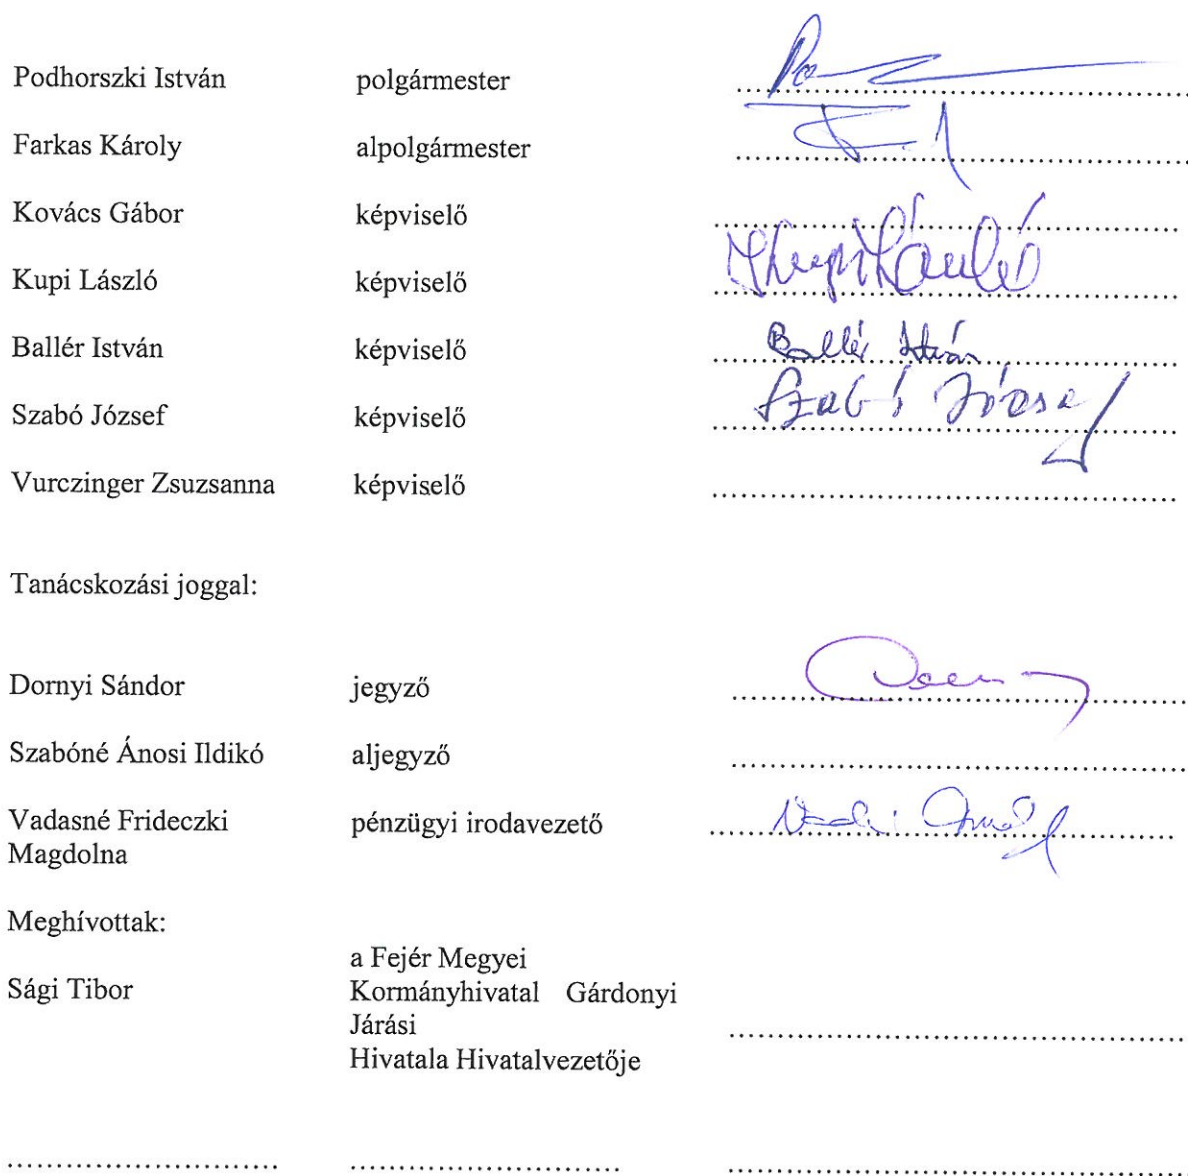 Podhorszki István polgármester ........................
Farkas Károly alpolgármester ........................
Kovács Gábor képviselő ........................
Kupi László képviselő Kupi László
Ballér István képviselő Ballér István
Szabó József képviselő Szabó József
Vurczinger Zsuzsanna képviselő ........................
Tanácskozási joggal:
Dornyi Sándor jegyző ........................
Szabóné Ánosi Ildikó aljegyző ........................
Vadasné Frideczki pénzügyi irodavezető ........................
Magdolna
Meghívottak:
a Fejér Megyei
Sági Tibor Kormányhivatal Gárdonyi
Járási ........................
Hivatala Hivatalvezetője
........................ ........................ ........................